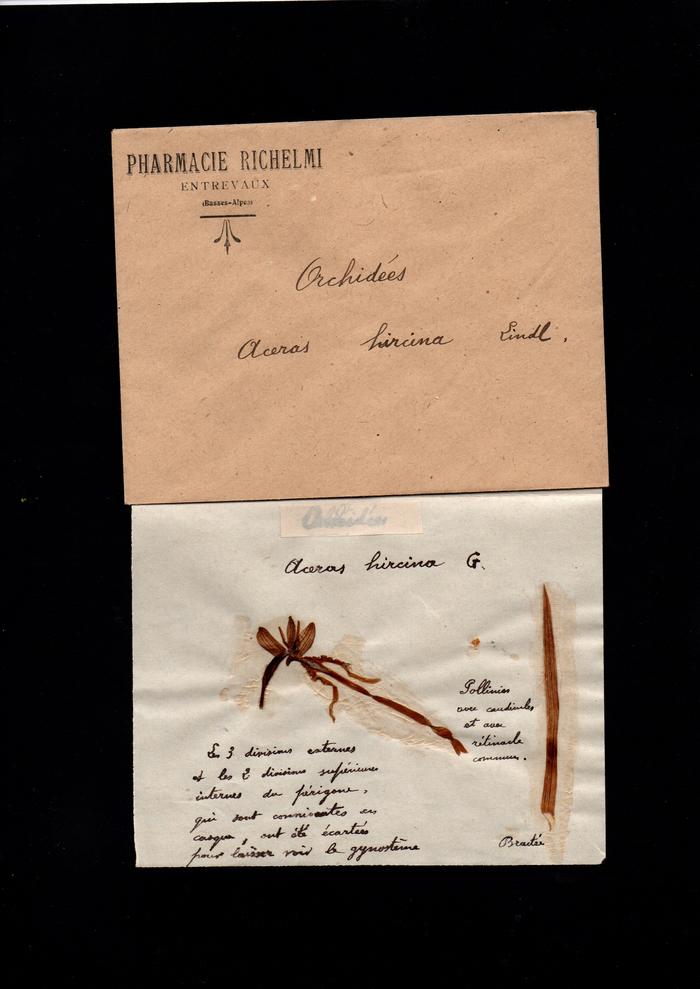 PHARMACIE RICHELMI
ENTREVAUX
(Basses-Alpes)
Orchidées
Aceras hircina Lindl.
Orchidées
Aceras hircina G.
Pollinies
avec caudicules
et avec
rétinacle
commun.
Les 3 divisions externes
et les 2 divisions supérieures
internes du périgone,
qui sont conniventes en
casque, ont été écartées
pour laisser voir le gynostème
Bractée